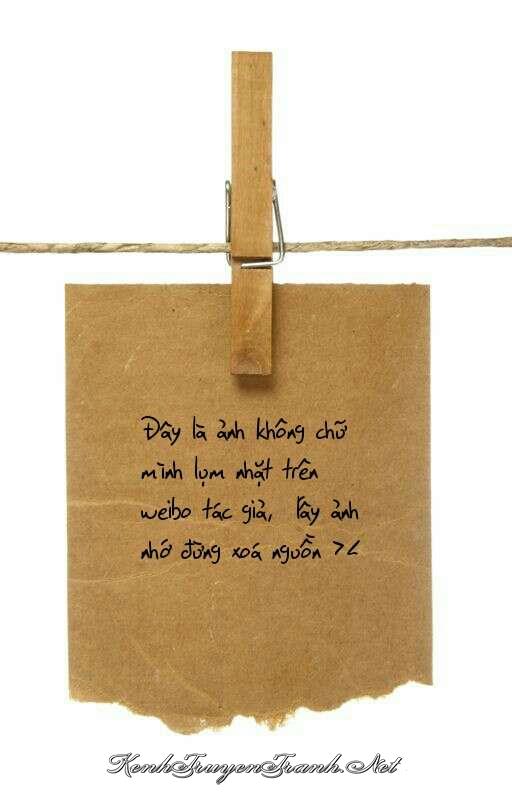 Đây là ảnh không chữ
mình lụm nhặt trên
weibo tác giả, lấy ảnh
nhớ đừng xoá nguồn ><
KenhTruyenTranh.Net